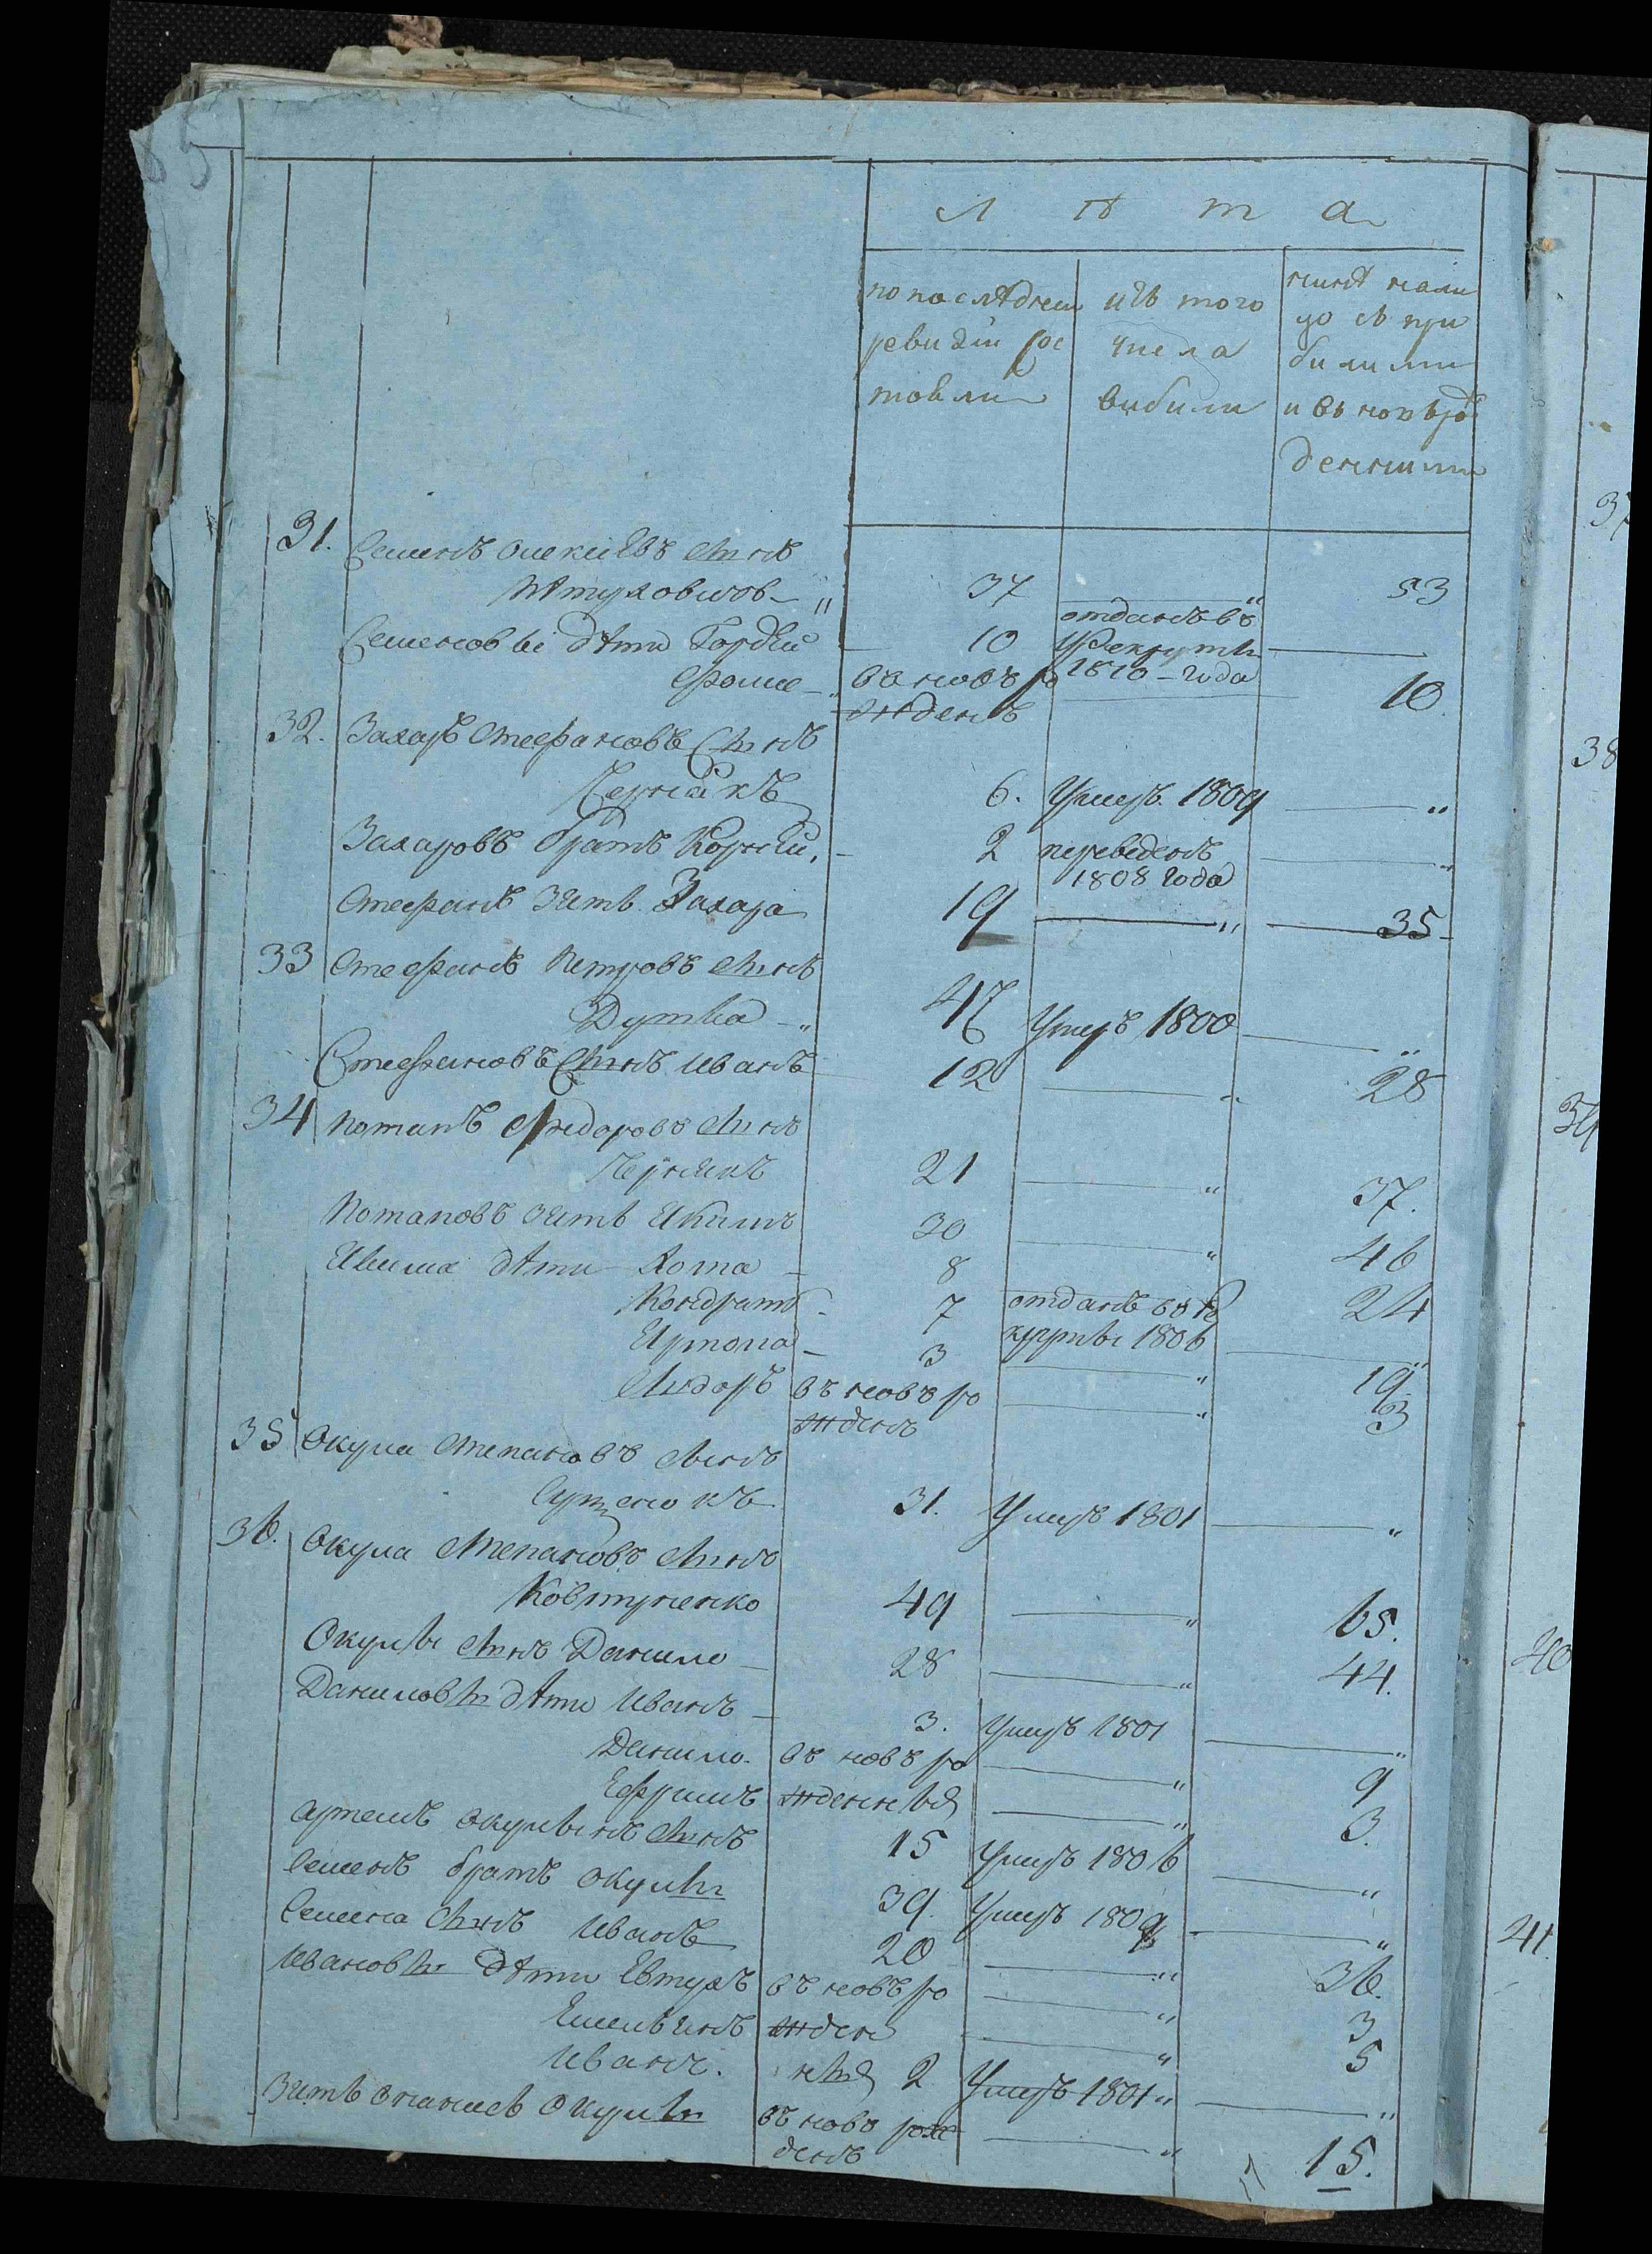 Лѣта
по последнеи изъ того нинѣ нали
ревизіи сос числа цо съ при
тояли вибили билими
и въ новь рож
денними
31. Семенъ Олексіевъ сынъ
Пѣтуховшов 37 " 53
Семеновы дѣти Гордѣй 10 отданъ въ рекруты 1810 года
Фома въ новъ рожденъ 10
32. Захаръ Стефановъ сынъ
Чернакъ 6. Умеръ 1809 "
Захаровъ братъ Корнѣй 2 переведенъ 1808 года "
Стефанъ зять Захара 19 " 35
33 Стефанъ Петровъ сынъ
Дутка 47 Умеръ 1800 "
Стефановъ сынъ Иванъ 12 " 28
34 Потапъ Сидоровъ сынъ
Чернякъ 21 " 37.
Потаповъ зять Якимъ 30 " 46
Якима дѣти Хома 8 24
Кондратъ 7 отданъ въ рекруты 1806 "
Ярмола 3 " 19.
Сидоръ въ новъ рожденъ " 3
35 Окула Степановъ сынъ
Сущенокъ 31. Умеръ 1801 "
36. Окула Степановъ сынъ
Ковтуненко 49 " 65.
Окулы сынъ Данило 28 " 44.
Даниловы дѣти Иванъ 3. Умеръ 1801 "
Данило. въ новъ ро " 9
Ефримъ жденныя " 3.
Артемъ Окулынъ сынъ 15 Умеръ 1806 "
Семенъ братъ Окулы 39. Умеръ 1809 "
Семена сынъ Иванъ 20 " 36.
Ивановы дѣти Евтухъ въ новъ ро " 3
Емельянъ жден " 5
Иванъ. ныя 2 Умеръ 1801 " "
Зять Окулы въ новъ рож " 15.
денъ
37
38
39
40
41.